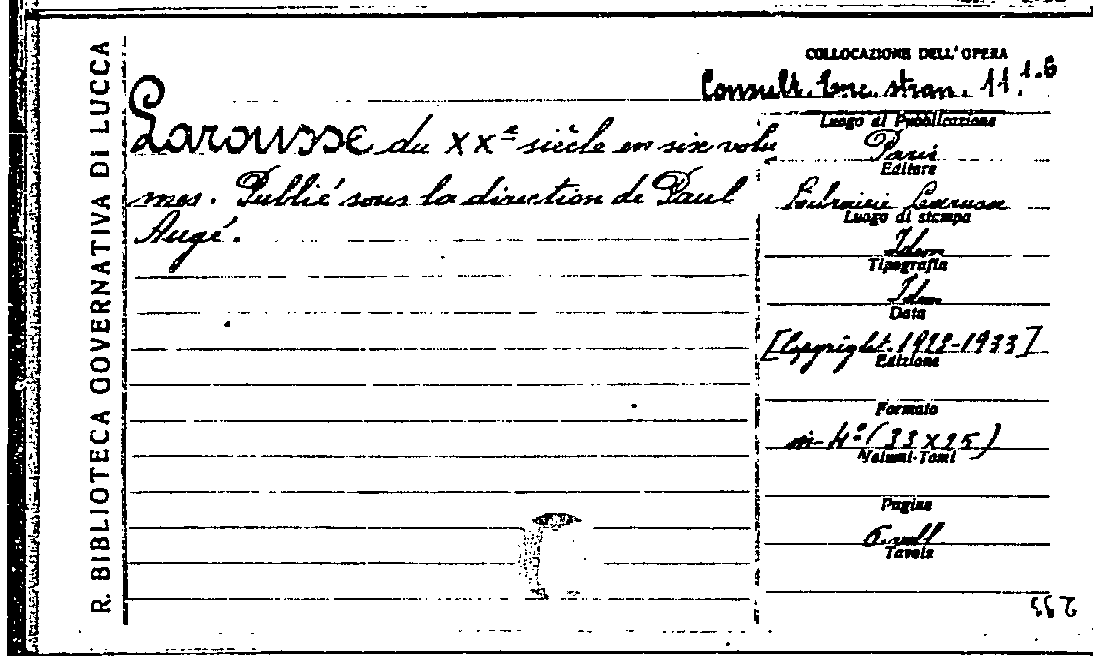 R. BIBLIOTECA GOVERNATIVA DI LUCCA
COLLOCAZIONE DELL'OPERA
Consult. Enc. stran. 11.1.6
Larousse du XXe siècle en six volu
mes. Publié sous la direction de Paul
Augé.
Luogo di Pubblicazione
Paris
Editore
Librairie Larousse
Luogo di stampa
Idem
Tipografia
Idem
Data
[Copyright. 1928-1933]
Edizione
Formato
in-4º (33x25)
Volumi-Tomi
Pagine
6 voll
Tavole